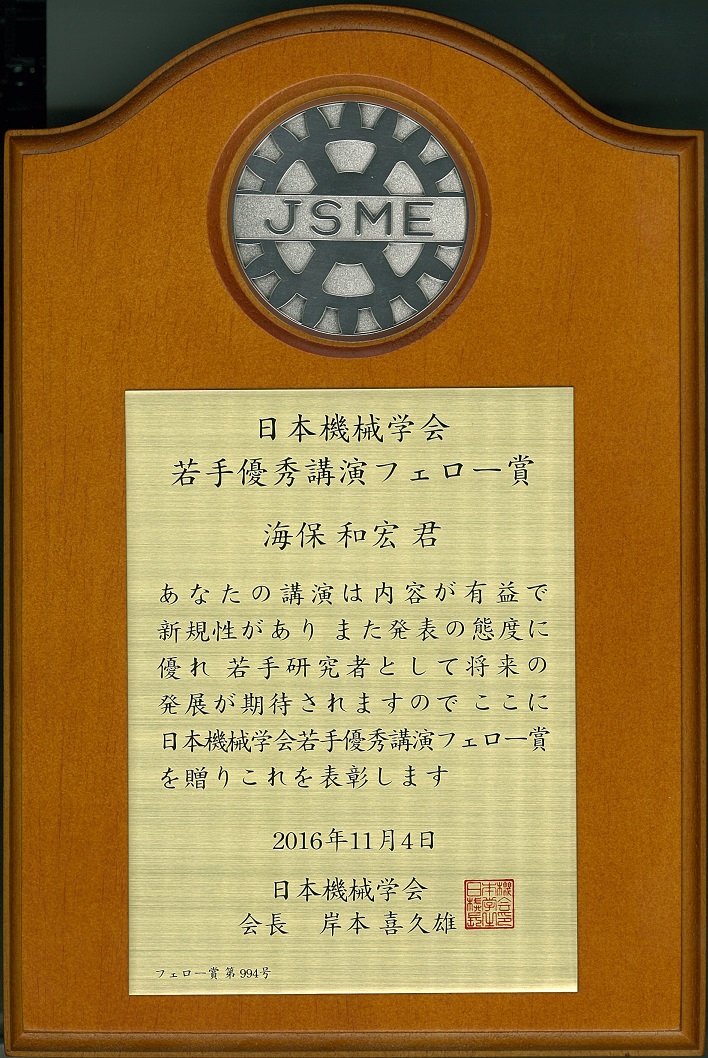 JSME
日本機械学会
若手優秀講演フェロー賞
海保 和宏 君
あなたの講演は内容が有益で
新規性があり また発表の態度に
優れ 若手研究者として将来の
発展が期待されますので ここに
日本機械学会若手優秀講演フェロー賞
を贈りこれを表彰します
2016年11月4日
日本機械学会
会長 岸本 喜久雄
フェロー賞 第994号